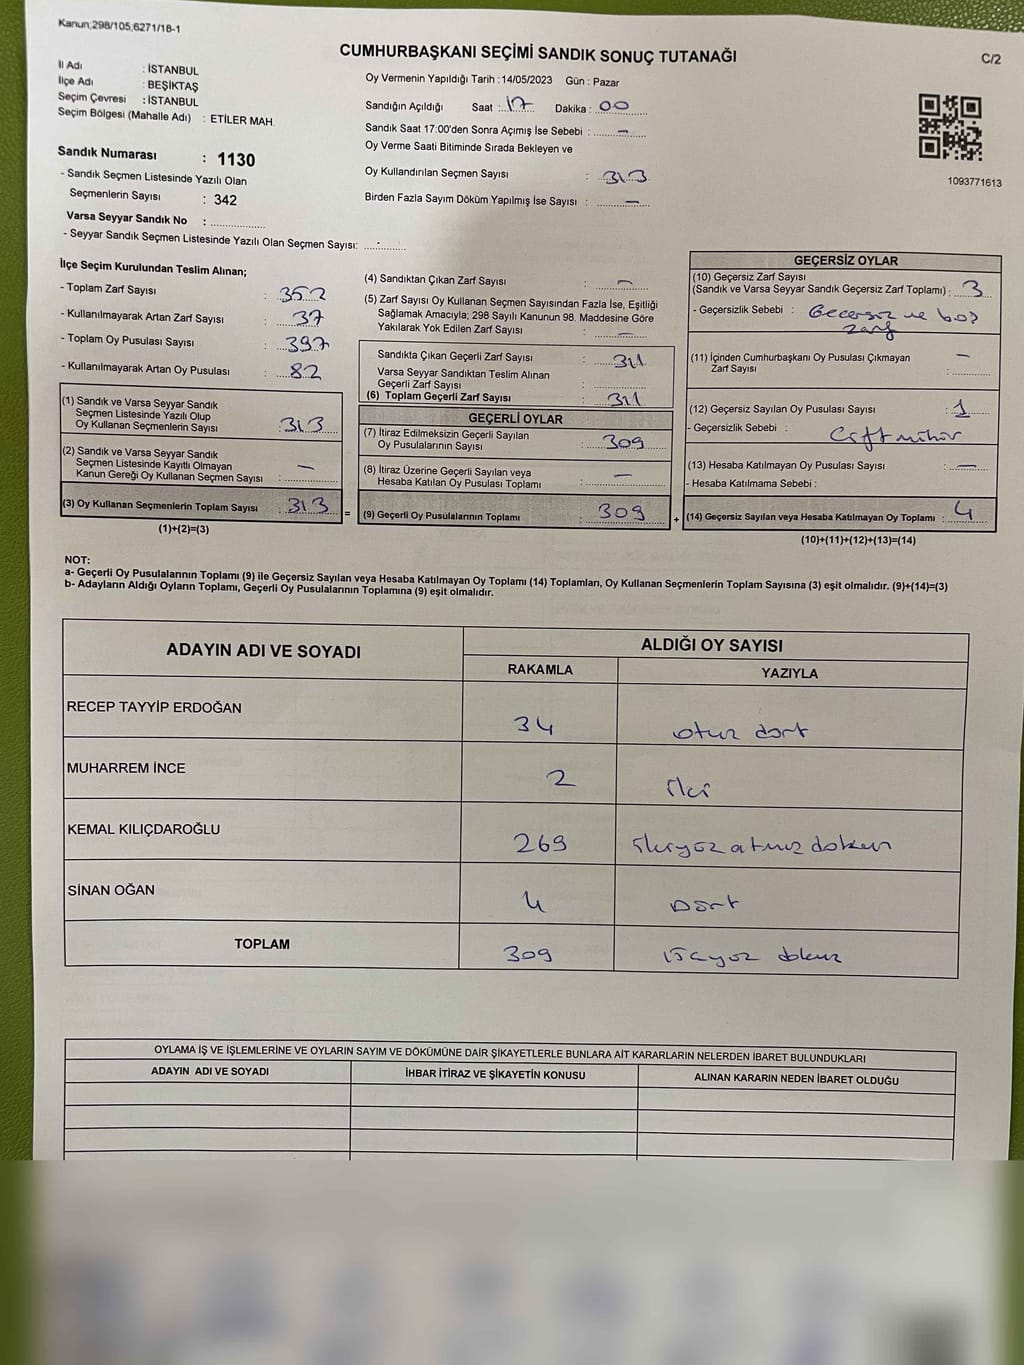 Kanun;298/105,6271/18-1
CUMHURBAŞKANI SEÇİMİ SANDIK SONUÇ TUTANAĞI
C/2
İl Adı : İSTANBUL
İlçe Adı : BEŞİKTAŞ
Seçim Çevresi : İSTANBUL
Seçim Bölgesi (Mahalle Adı) : ETİLER MAH.
Sandık Numarası : 1130
- Sandık Seçmen Listesinde Yazılı Olan
Seçmenlerin Sayısı : 342
Varsa Seyyar Sandık No : ..................
- Seyyar Sandık Seçmen Listesinde Yazılı Olan Seçmen Sayısı: ............
Oy Vermenin Yapıldığı Tarih : 14/05/2023 Gün : Pazar
Sandığın Açıldığı Saat : 17 Dakika : 00
Sandık Saat 17:00'den Sonra Açımış İse Sebebi : —
Oy Verme Saati Bitiminde Sırada Bekleyen ve
Oy Kullandırılan Seçmen Sayısı : 313
Birden Fazla Sayım Döküm Yapılmış İse Sayısı : —
1093771613
İlçe Seçim Kurulundan Teslim Alınan;
- Toplam Zarf Sayısı : 352
- Kullanılmayarak Artan Zarf Sayısı : 37
- Toplam Oy Pusulası Sayısı : 397
- Kullanılmayarak Artan Oy Pusulası : 82
(1) Sandık ve Varsa Seyyar Sandık
Seçmen Listesinde Yazılı Olup
Oy Kullanan Seçmenlerin Sayısı : 313
(2) Sandık ve Varsa Seyyar Sandık
Seçmen Listesinde Kayıtlı Olmayan
Kanun Gereği Oy Kullanan Seçmen Sayısı : —
(3) Oy Kullanan Seçmenlerin Toplam Sayısı : 313
(1)+(2)=(3)
=
(4) Sandıktan Çıkan Zarf Sayısı : —
(5) Zarf Sayısı Oy Kullanan Seçmen Sayısından Fazla İse, Eşitliği
Sağlamak Amacıyla; 298 Sayılı Kanunun 98. Maddesine Göre
Yakılarak Yok Edilen Zarf Sayısı : —
Sandıkta Çıkan Geçerli Zarf Sayısı : 311
Varsa Seyyar Sandıktan Teslim Alınan
Geçerli Zarf Sayısı :
(6) Toplam Geçerli Zarf Sayısı : 311
GEÇERLİ OYLAR
(7) İtiraz Edilmeksizin Geçerli Sayılan
Oy Pusulalarının Sayısı : 309
(8) İtiraz Üzerine Geçerli Sayılan veya
Hesaba Katılan Oy Pusulası Toplamı : —
(9) Geçerli Oy Pusulalarının Toplamı : 309
+
GEÇERSİZ OYLAR
(10) Geçersiz Zarf Sayısı
(Sandık ve Varsa Seyyar Sandık Geçersiz Zarf Toplamı) : 3
- Geçersizlik Sebebi : Gecersiz ve boş
zarf
(11) İçinden Cumhurbaşkanı Oy Pusulası Çıkmayan
Zarf Sayısı : —
(12) Geçersiz Sayılan Oy Pusulası Sayısı : 1
- Geçersizlik Sebebi : Çift mühür
(13) Hesaba Katılmayan Oy Pusulası Sayısı : —
- Hesaba Katılmama Sebebi :
(14) Geçersiz Sayılan veya Hesaba Katılmayan Oy Toplamı : 4
(10)+(11)+(12)+(13)=(14)
NOT:
a- Geçerli Oy Pusulalarının Toplamı (9) ile Geçersiz Sayılan veya Hesaba Katılmayan Oy Toplamı (14) Toplamları, Oy Kullanan Seçmenlerin Toplam Sayısına (3) eşit olmalıdır. (9)+(14)=(3)
b- Adayların Aldığı Oyların Toplamı, Geçerli Oy Pusulalarının Toplamına (9) eşit olmalıdır.
ADAYIN ADI VE SOYADI ALDIĞI OY SAYISI
RAKAMLA YAZIYLA
RECEP TAYYİP ERDOĞAN 34 otuz dört
MUHARREM İNCE 2 iki
KEMAL KILIÇDAROĞLU 269 ikiyüz atmış dokuz
SİNAN OĞAN 4 Dört
TOPLAM 309 üçyüz dokuz
OYLAMA İŞ VE İŞLEMLERİNE VE OYLARIN SAYIM VE DÖKÜMÜNE DAİR ŞİKAYETLERLE BUNLARA AİT KARARLARIN NELERDEN İBARET BULUNDUKLARI
ADAYIN ADI VE SOYADI İHBAR İTİRAZ VE ŞİKAYETİN KONUSU ALINAN KARARIN NEDEN İBARET OLDUĞU